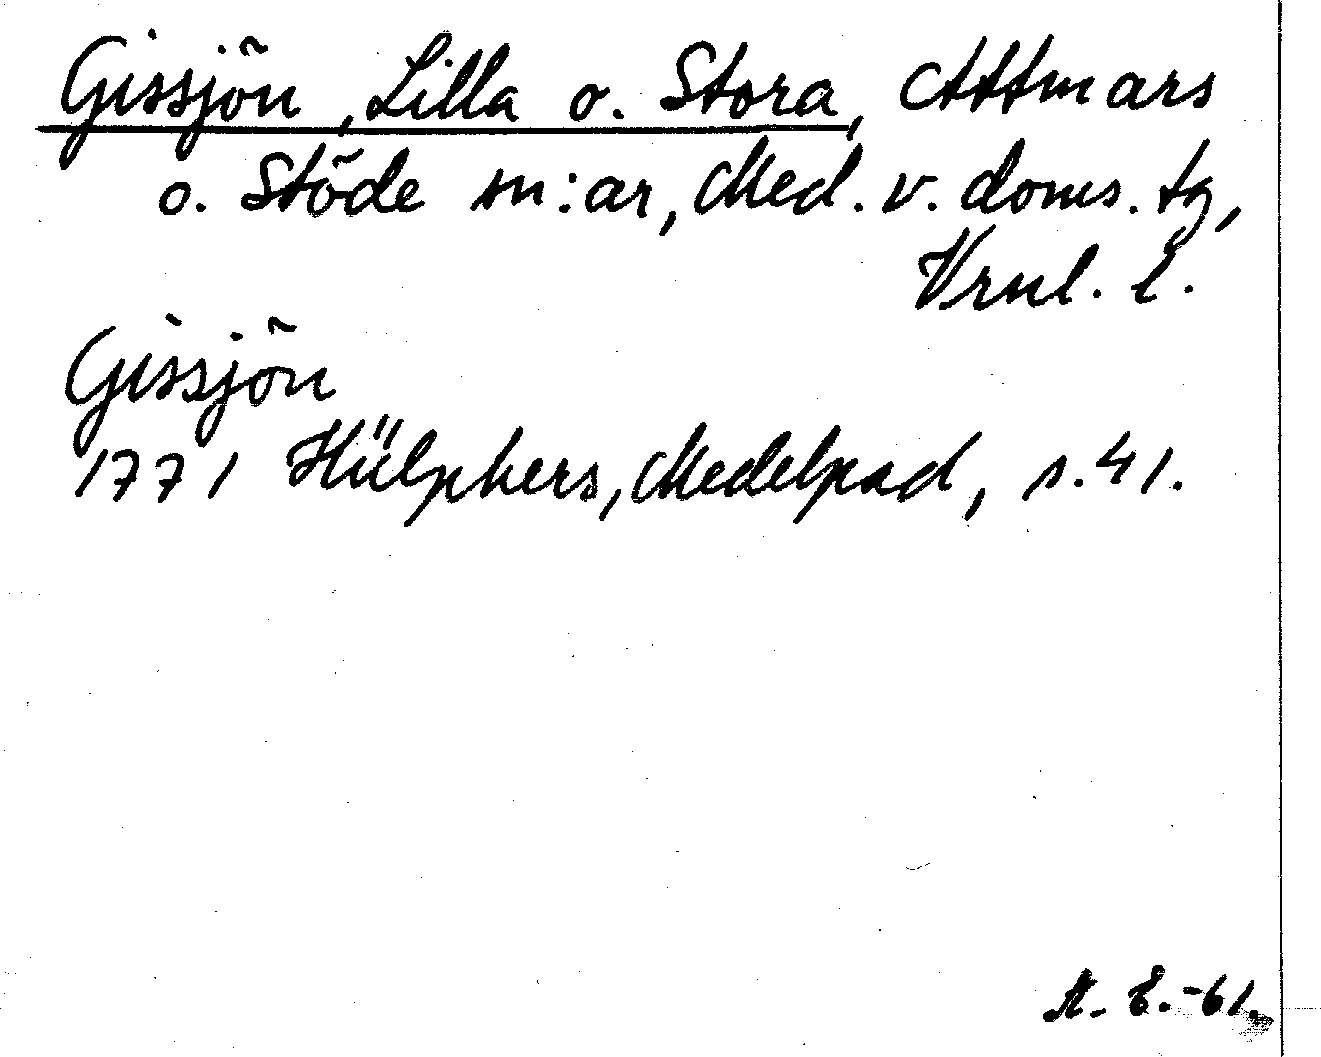 Gissjön, Lilla o. Stora, Attmars
o. Stöde sn:ar, Med. v. doms. tg,
Vrnl. l.
Gissjön
1771 Hülphers, Medelpad, s. 41.
A. E. -61.